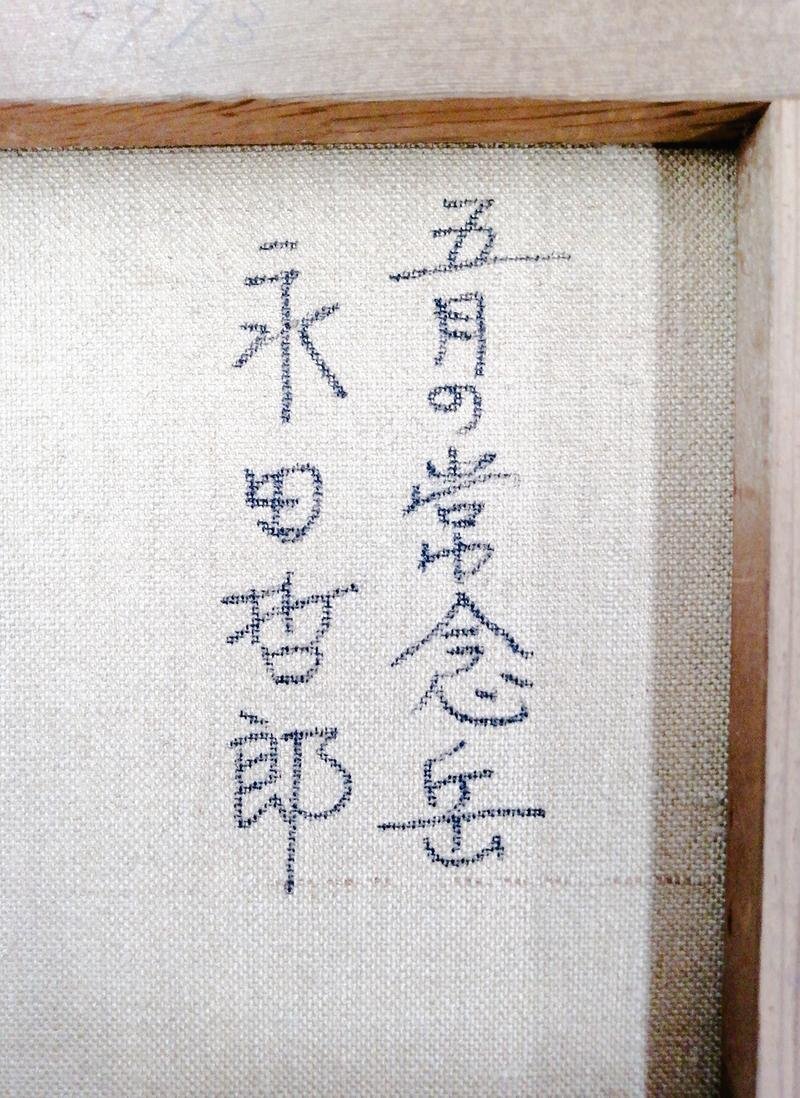 五月の常念岳
永田哲郎